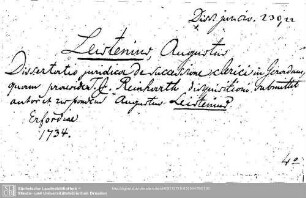 Diss. jur. civ. 239,22
Leistenius, Augustus
Dissertatio juridica de successione clerici in Geradam,
quam praeside T. J. Reinharth disquisitioni submittet
autor et respondens Augustus Leistenius
Erfordiae
1734.
4°
Sächsische Landesbibliothek -
Staats- und Universitätsbibliothek Dresden